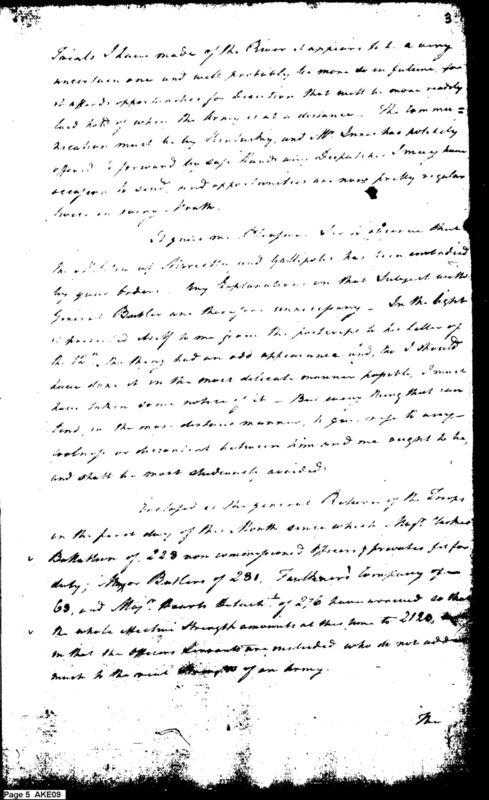 3
Trials I have made of the River it appears to be a very
uncertain one and will probably be more so in future, for
it affords opportunities for Desertion that will be more readily
laid hold of when the Army is at a distance. The Commu=
nication must be by Kentucky, and Mr. Innes has politely
offered to forward by safe hands any Dispatches I may have
occasion to send, and opportunities are now pretty regular
twice in every Month.
It gives me Pleasure Sir to observe that
the Militia at Marietta and Gallipolis has been embodied
by your orders. My Explanations on that Subject with
General Butler was therefore unnecessary. In the light
it presented itself to me from the postscript to his Letter of
the the thing had an odd appearance and, tho' I should
have done it in the most delicate manner possible, I must
have taken some notice of it – But every thing that can
tend, in the most distant manner, to give rise to any
coolness or discontent between him and me ought to be,
and shall be most studiously avoided.
Enclosed is the general Return of the Troops
on the first day of this Month since which Majr.
Battalion of 223 non commissioned officers & privates fit for
duty; Major Butlers of 231, Faulkner's Company of
63, and Majr. Harts Detacht. of 276 have arrived so that
the whole effective Strength amounts at this time to 2120,
in that the officers Servants are included who do not add
much to the real Strength of an Army.
The
Page 5 AKE09